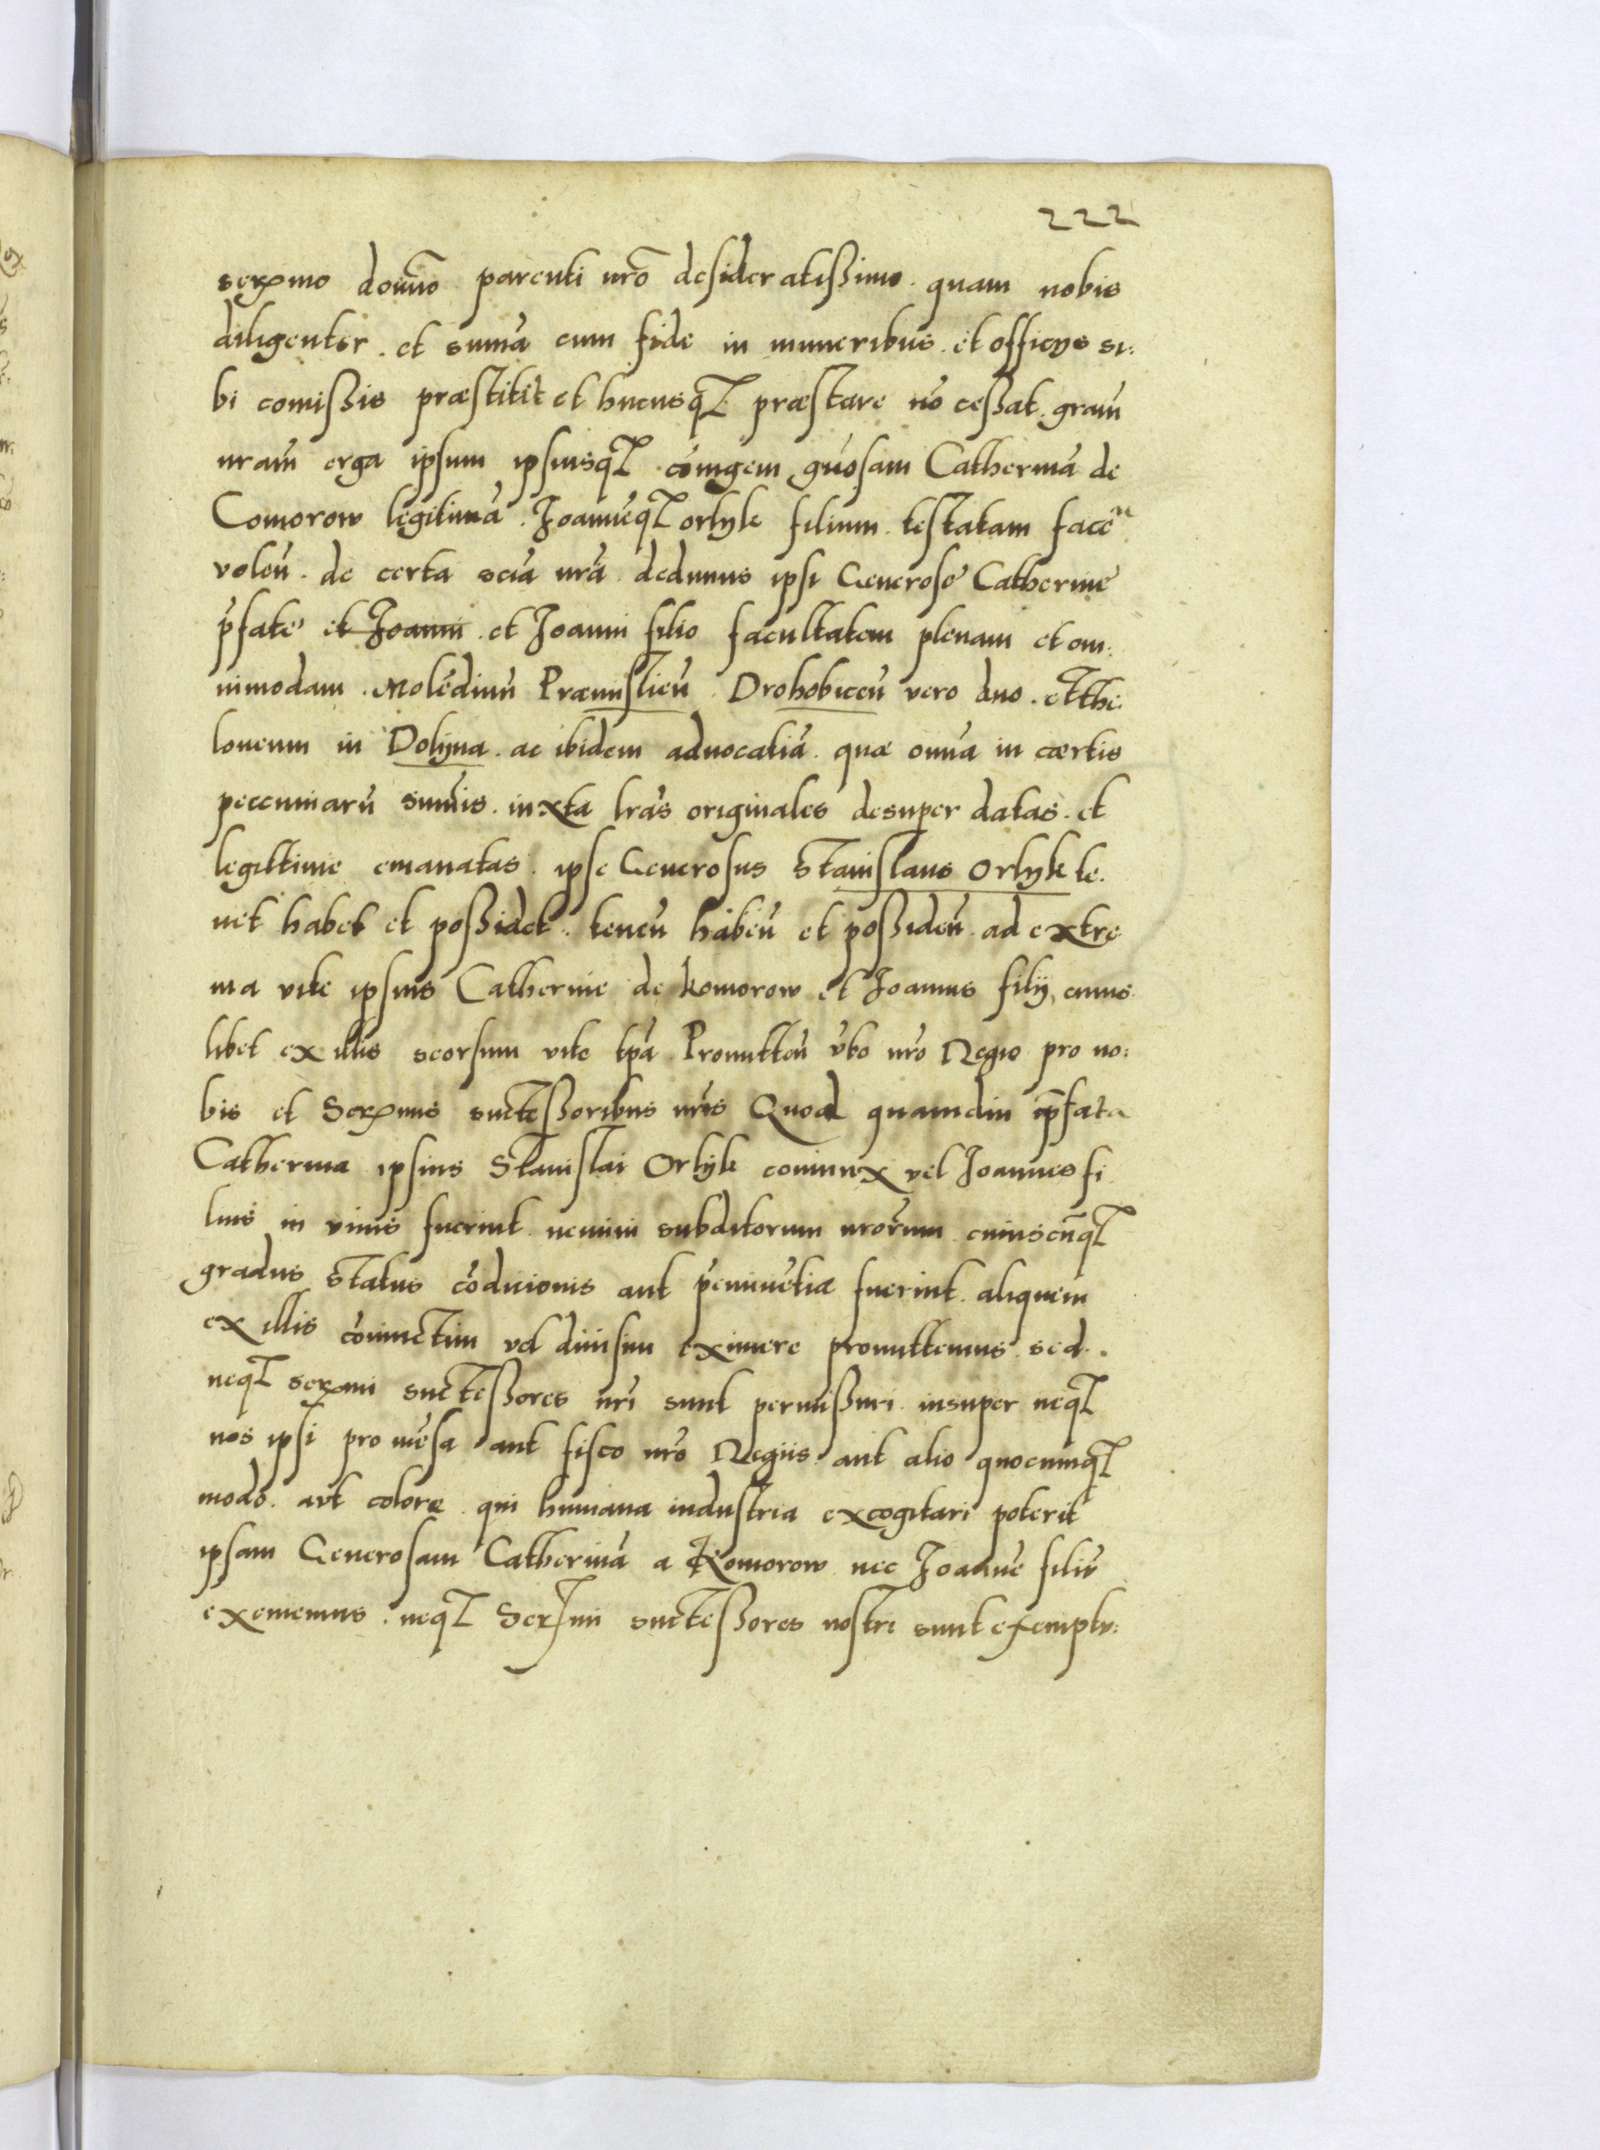 222
serxmo domno parenti nro desideratissimo. quam nobis
diligenter. et suma cum fide in muneribus. et officys si:
bi comissis præstitit et hucusq præstare no cessat. gram
nram erga ipsum ipsiusq coniugem guosam Catherina de
Comorow legitima. Joanneq orlyk filium. testatam face
volen. de certa scia nra dedimus ipsi Generose Catherine
pfate et Joanni. et Joanni filio facultatem plenam et om:
nimodam. Molendinu Præmislien Drohobicen vero duo. et the
loneum in Dolyna. ac ibidem advocatia. quæ omnia in cærtis
peccuniaru sumis. iuxta lras originales desuper datas. et
legittime emanatas. ipse Generosus Stanislaus Orlyk te.
net habet et possidet. tenen haben et possiden. ad extre
ma vite ipsius Catherine de Komorow et Joannis filij, cuius
libet ex illis seorsum vite tpa Promitten vbo nro Regio pro no:
bis et Serxmis suctessoribus nris Quod quamdiu pfata
Catherina ipsius Stanislai Orlyk coniunx vel Joannes fi
lius in viuis fuerint. nemini subditorum nrorum cuiuscuq
gradus status codicionis aut peminetiæ fuerint. aliquem
ex illis coniunctim vel diuisim eximere promittemus. sed.
neq serxmi suctessores nri sunt permissuri. insuper neq
nos ipsi pro mesa aut fisco nro Regiis aut alio quocumq
modo. aut colore qui humana industria excogitari poterit
ipsam Generosam Catherina a Komorow nec Joanne filiu
exememus. neq Serxmi suctessores nostri sunt exemptu: